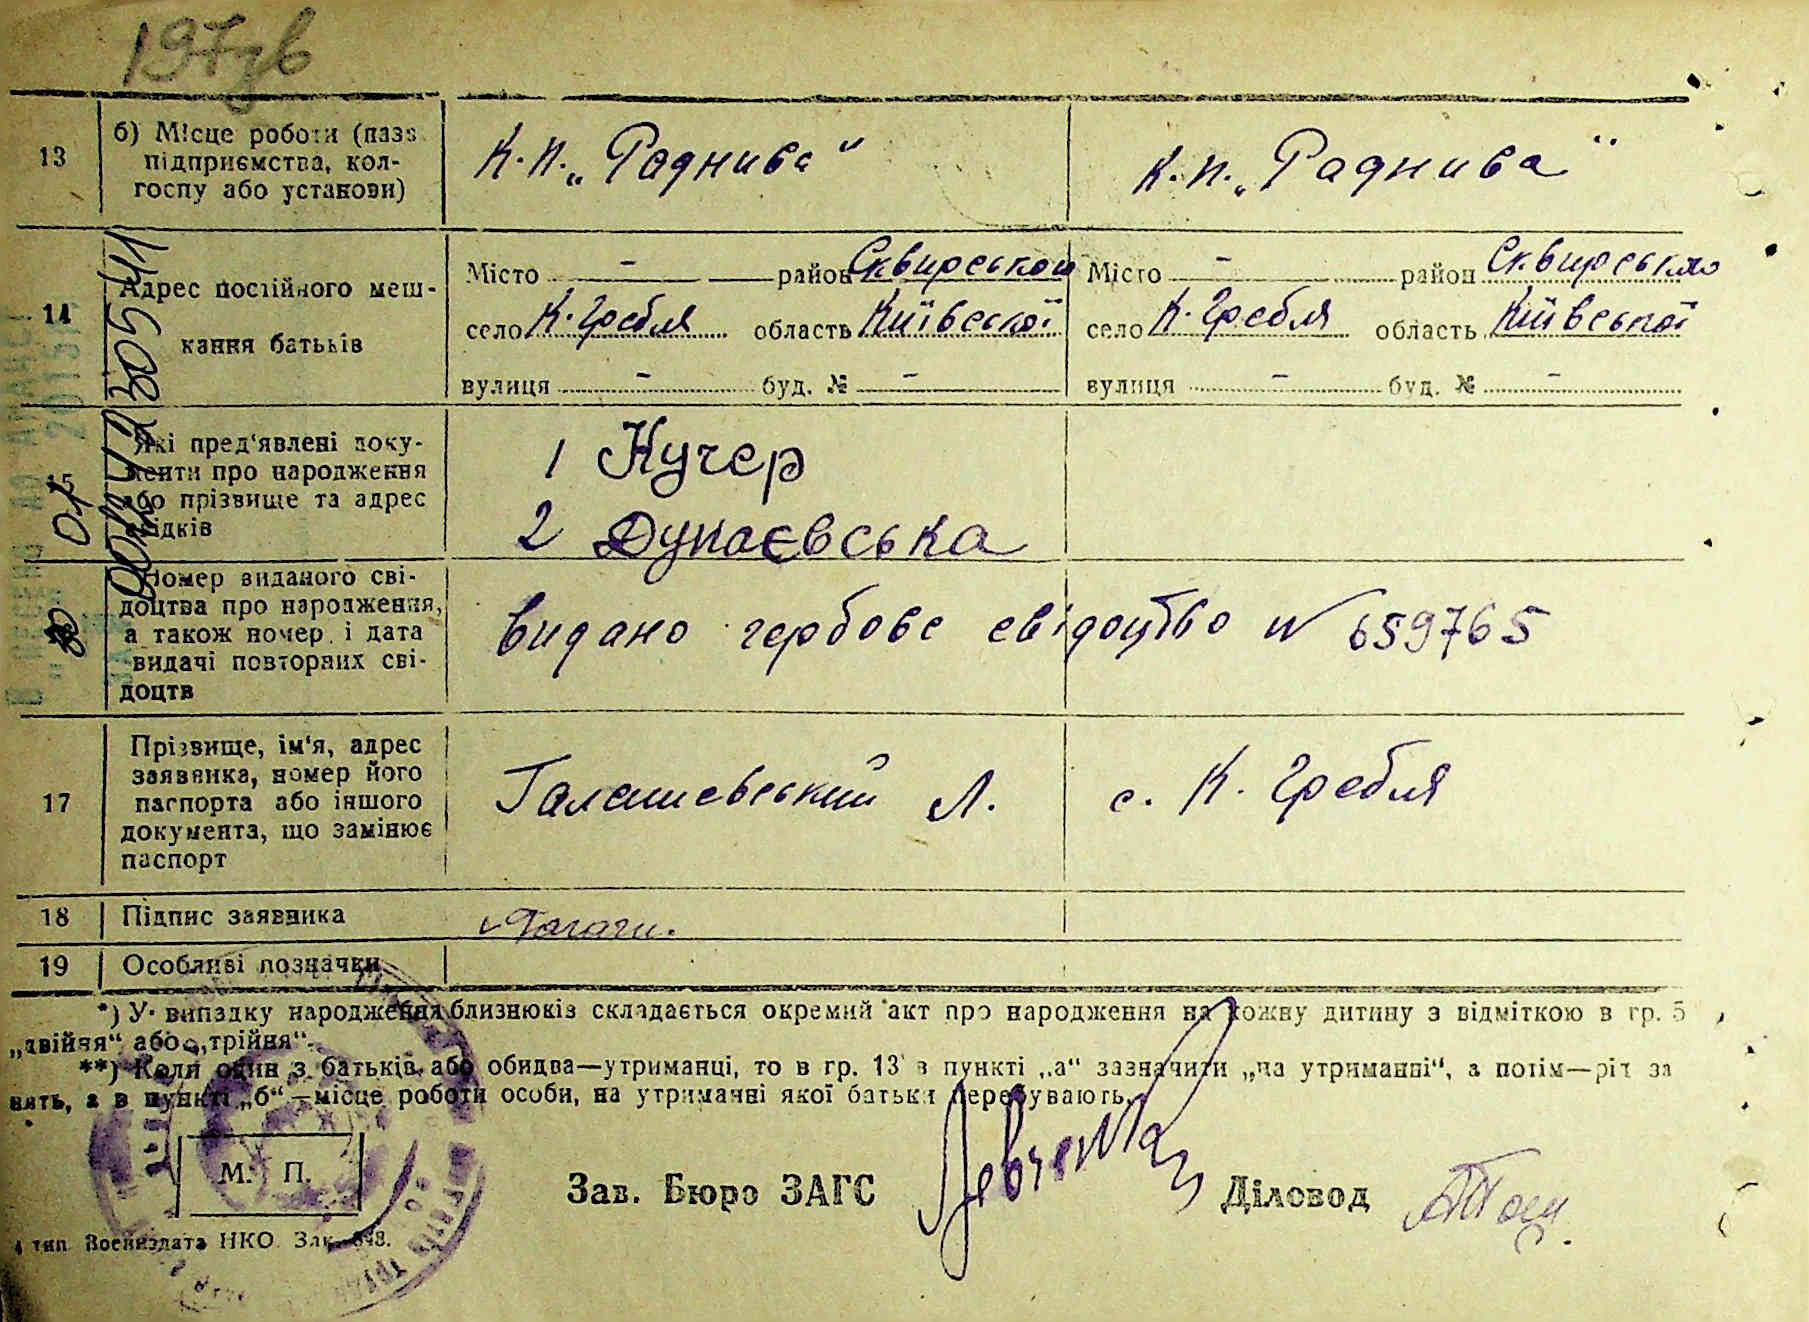 197зв
13
б) Місце роботи (назв.
підприємства, кол-
госпу або установи)
К.п. „Раднива"
К.п. „Раднива"
14
Адрес постійного меш-
кання батьків
Місто - район Сквирського
село К. Гребля область Київської
вулиця - буд. № -
Місто - район Сквирського
село К. Гребля область Київської
вулиця - буд. № -
15
Які пред'явлені доку-
менти про народження
або прізвище та адрес
свідків
1 Кучер
2 Дунаєвська
Номер виданого сві-
доцтва про народження,
а також номер і дата
видачі повторних сві-
доцтв
видано гербове свідоцтво № 659765
17
Прізвище, ім'я, адрес
заявника, номер його
паспорта або іншого
документа, що замінює
паспорт
Галашевський Л.
с. К. Гребля
18
Підпис заявника
19
Особливі позначки
*) У випадку народження близнюків складається окремий акт про народження на кожну дитину з відміткою в гр. 5
„двійня“ або „трійня“.
**) Коли один з батьків або обидва—утриманці, то в гр. 13 в пункті „а“ зазначити „на утриманні“, а потім—рід за
нять, а в пункті „б“—місце роботи особи, на утриманні якої батьки перебувають.
М. П.
Зав. Бюро ЗАГС
Діловод
4 тип. Воениздата НКО. Зак. 848.